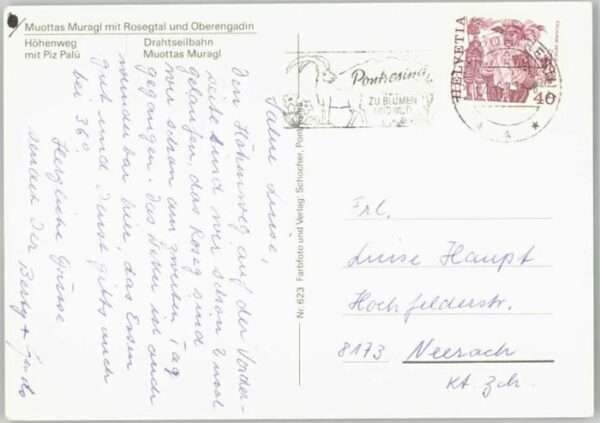 Muottas Muragl mit Rosegtal und Oberengadin
Höhenweg
mit Piz Palü
Drahtseilbahn
Muottas Muragl
Pontresina
ZU BLUMEN
UND WILD
HELVETIA
40
Nr. 623 Farbfoto und Verlag Schocher, Pontresina
Salü Luise,
Den Höhenweg auf der Vorder-
seite sind wir schon 2 mal
gelaufen, das Roseg sind
wir schon am zweiten Tag
gegangen. Das Wetter ist auch
wunderbar hier, das Essen
gut und Durst gibts auch
bei 36°.
Herzliche Grüsse
sendet Dir Betty +
Frl.
Luise Haupt
Hochfelderstr.
8173 Neerach
Kt. Zch.